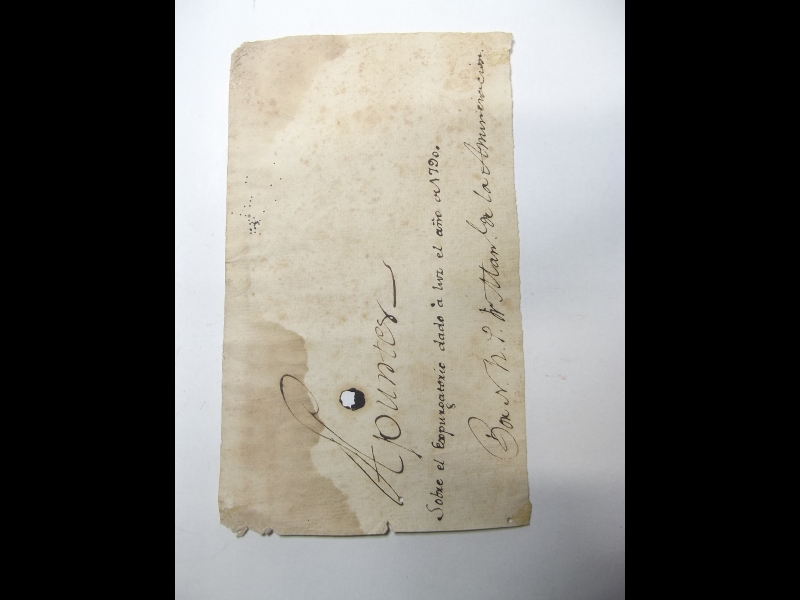 Apuntes
Sobre el Expurgatorio dado à luz el año de 1790.
Por N. R. P. Fr. Man.l de la Anunciacion.